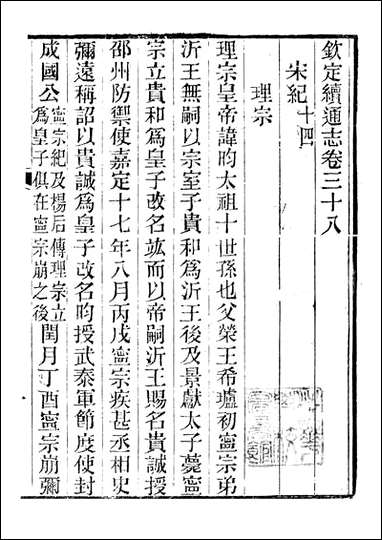 欽定續通志卷三十八
宋紀十四
理宗
理宗皇帝諱昀太祖十世孫也父榮王希瓐初寧宗弟
沂王無嗣以宗室子貴和爲沂王後及景獻太子薨寧
宗立貴和爲皇子改名竑而以帝嗣沂王賜名貴誠授
邵州防禦使嘉定十七年八月丙戌寧宗疾甚丞相史
彌遠稱詔以貴誠爲皇子改名昀授武泰軍節度使封
成國公寧宗紀及楊后傳理宗立爲皇子俱在寧宗崩之後閏月丁酉寧宗崩彌